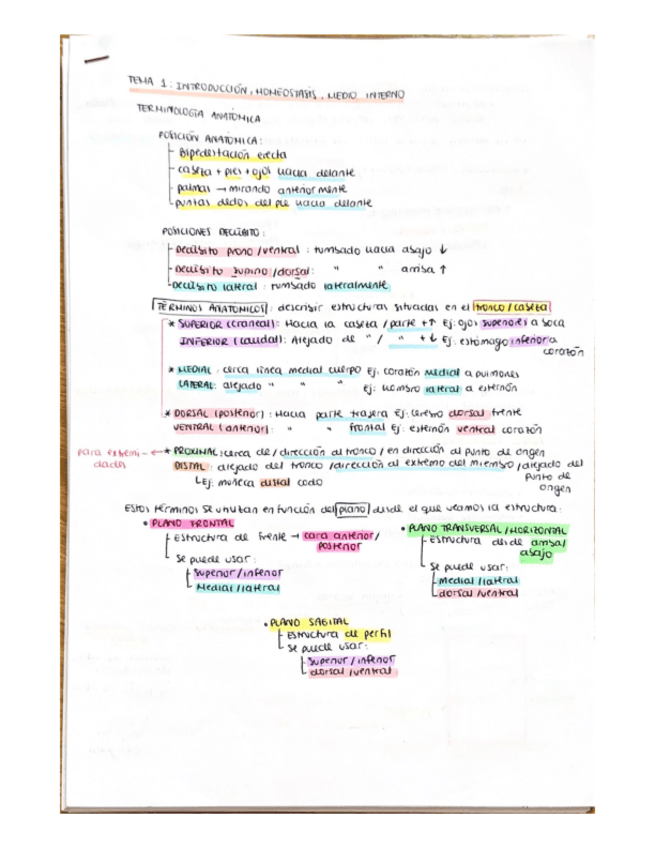 TEMA 1: INTRODUCCIÓN, HOMEOSTASIS, MEDIO INTERNO
TERMINOLOGÍA ANATÓMICA
POSICIÓN ANATÓMICA:
Bipedestación erecta
cabeza + pies + ojos hacia delante
palmas → mirando anteriormente
puntas dedos del pie hacia delante
POSICIONES DECÚBITO:
Decúbito prono/ventral: tumbado hacia abajo ↓
Decúbito supino/dorsal: " " arriba ↑
Decúbito lateral: tumbado lateralmente
TÉRMINOS ANATÓMICOS: describir estructuras situadas en el tronco/cabeza
* SUPERIOR (craneal): Hacia la cabeza/parte +↑ Ej: ojos superiores a boca
INFERIOR (caudal): Alejado de " / " +↓ Ej: estómago inferior a
corazón
* MEDIAL: cerca línea medial cuerpo Ej: corazón medial a pulmones
LATERAL: alejado " " " Ej: hombro lateral a esternón
* DORSAL (posterior): Hacia parte trasera Ej: cerebro dorsal frente
VENTRAL (anterior): " " frontal Ej: esternón ventral corazón
para extremi-
dades
← * PROXIMAL: cerca de/dirección al tronco/en dirección al punto de origen
DISTAL: alejado del tronco/dirección al extremo del miembro/alejado del
punto de
origen
Ej: muñeca distal codo
Estos términos se usan en función del plano desde el que veamos la estructura:
• PLANO FRONTAL
Estructura de frente → cara anterior/
posterior
Se puede usar:
Superior/inferior
Medial/lateral
• PLANO TRANSVERSAL/HORIZONTAL
Estructura desde arriba/
abajo
Se puede usar:
medial/lateral
dorsal/ventral
• PLANO SAGITAL
Estructura de perfil
Se puede usar:
Superior/inferior
dorsal/ventral